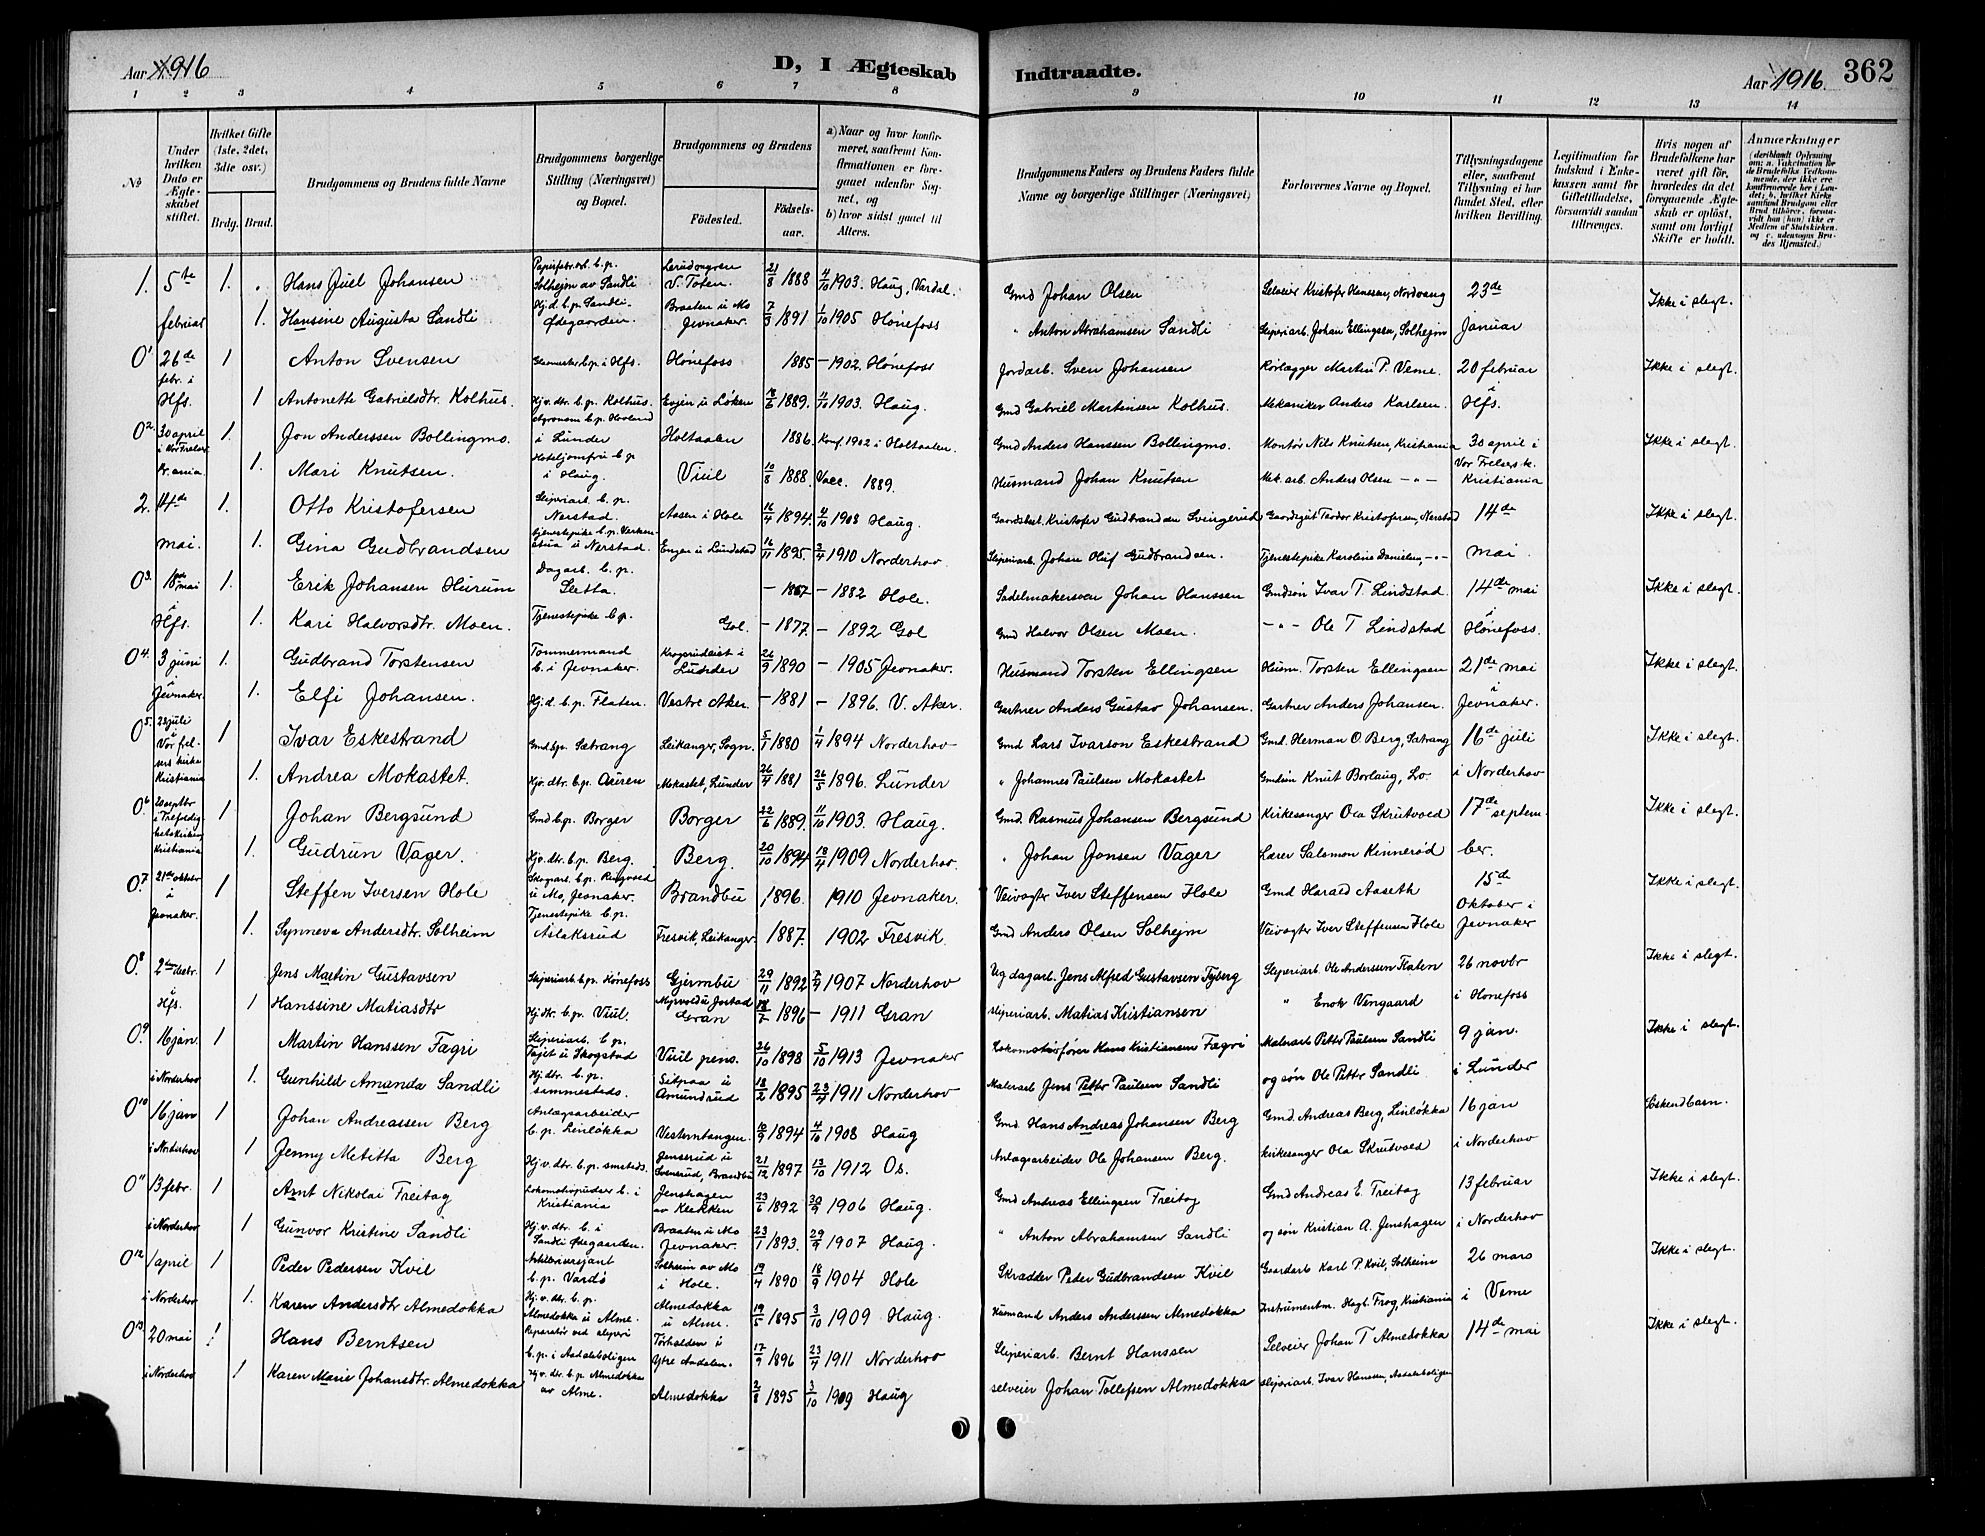 Aar 1916
D, I Ægteskab
Indtraadte.
Aar 1916.
362
1 2 3 4 5 6 7 8 9 10 11 12 13 14
No
Under hvilken Dato er Ægteskabet stiftet.
Hvilket Gifte (1ste, 2det, 3die osv.)
Brdg. Brud.
Brudgommens og Brudens fulde Navne
Brudgommens borgerlige Stilling (Næringsvei) og Bopæl.
Brudgommens og Brudens
Födested.
Födselsaar.
a) Naar og hvor konfirmeret, saafremt Konfirmationen er foregaaet udenfor Sognet, og
b) hvor sidst gaaet til Alters.
Brudgommens Faders og Brudens Faders fulde Navne og borgerlige Stillinger (Næringsvei)
Forlovernes Navne og Bopæl.
Tillysningsdagene eller, saafremt Tillysning ei har fundet Sted, efter hvilken Bevilling.
Legitimation for Indskud i Enkekassen samt for Giftetilladelse, forsaavidt saadan tiltrænges.
Hvis nogen af Brudefolkene har været gift för, hvorledes da det foregaaende Ægteskab er oplöst, samt om lovligt Skifte er holdt.
Anmærkninger
1. 5te 1. Hans Juel Johansen Solhejm av Sandli V. Toten. 21/8 1888 4/10 1903. Haug, Vardal. Gmd Johan Olsen Selveier Kristofer Hanssen, Nordvang 23de Ikke i slegt.
februar 1. Hansine Augusta Sandli Hj.d. b.p. Sandli-Ødegaarden. Braaten u Mo Jevnaker. 7/3 1891 1/10 1905 Hönefoss " Anton Abrahamsen Sandli Sliperiarb. Johan Ellingsen, Solhejm Januar
0 1 26de febr. i 1 Anton Svensen b.p. i Hfs. Hönefoss 1885 – 1902. Hönefoss Jordarb. Sven Johansen Rörlægger Martin P. Veme. 20 februar Ikke i slegt.
Hfs. 1 Antonette Gabrielsdtr. Kolhus. Hj.v. dtr. b.p. Kolhus. Evjen u Löken 1889. 11/10 1903. Haug. Gmd Gabriel Martinsen Kolhus. Mekaniker Anders Karlsen. i Hfs.
0 2. 30 april 1. Jon Anderssen Bollingmo. Agronom b.p. Hovland i Lunder Holtaalen 1886. Konf. 1902 i Holtaalen. Gmd Anders Hanssen Bollingmo. Kontor Nils Knutsen, Kristiania 30 april i Ikke i slegt.
Kr.ania 1. Mari Knutsen. Hoteljomfru b.p. i Haug. Viul 10/8 1888. Vacc. 1889. Husmand Johan Knutsen Mek. arb. Anders Olsen –"– Vor Frelsers k. Kristiania
2. 14de 1. Otto Kristofersen Sliperiarb. b.p. Nerstad. Aasen i Hole 16/4 1894. 4/10 1908 Haug. Gaardsbest. Kristofer Gudbrandsen Svingerud Gaardsgut Teodor Kristofersen, Nerstad 14de Ikke i slegt.
mai. 1. Gina Gudbrandsen Tjenestepike u Nerstad. Engen u Lundstad 16/11 1895. 2/4 1910 Norderhov. Sliperiarb. Johan Oluf Gudbrandsen. Tjenestepike Karoline Danielsen, –"– mai.
0 3. 18de mai 1. Erik Johansen Hurum Dagarb. b.p. Sletta. – 1867 – 1882 Hole. Sadelmakersven Johan Hanssen Gmdsön Ivar T. Lindstad. 14de mai Ikke i slegt.
i Hfs. 1. Kari Halvorsdtr. Moen. Tjenestepike b.p. Gol. – 1877. – 1892 Gol Gmd Halvor Olsen Moen. –"– Ole T Lindstad i Hönefoss.
0 4. 3 juni 1. Gudbrand Torstensen Tommermand b. i Jevnaker. Krogsrudeiet i Lunder 26/9 1890 – 1905 Jevnaker. Husmand Torsten Ellingsen Husm. Torsten Ellingsen 21de mai Ikke i slegt.
i Jevnaker. 1. Elfi Johansen. Hj.d. b.p. Flaten. Vestre Aker. – 1881 – 1896. V. Aker. Gartner Anders Gustav Johansen. Gartner Anders Johansen. i Jevnaker.
0 5. 28 juli i Vor frelsers kirke 1 Ivar Eskestrand Gmd b.p. Sætrang Leikanger, Sogn. 5/1 1880 1/4 1894 Norderhov Gmd Lars Ivarson Eskestrand Gmd. Herman O. Berg, Sætrang 16de juli Ikke i slegt.
Kristiania 1. Andrea Mokastet. Hjv. dtr. b.p. Mokastet, Lunder 26/4 1881 26/5 1896. Lunder " Johannes Paulsen Mokastet Gmdsön Knut Borlaug, Lo. i Norderhov
0 6 1 Johan Bergsund Gmd b.p. Borger Borger 22/6 1889. 11/10 1903. Haug. Gmd. Rasmus Johansen Bergsund Kirkesanger Ola Skrutvold 17de septem- Ikke i slegt.
Kristiania 1. Gudrun Vager. Hj.v. dtr. b.p. Berg. Berg. 20/10 1894 18/4 1909 Norderhov. " Johan Jonsen Vager Lærer Salomon Kinneröd ber.
0 7. 21de oktobr i 1 Steffen Iversen Hole Skogsarb. b.p. Ringvold u Mo, Jevnaker. Brandbu 1896. 1910 Jevnaker. Veivogter Iver Steffensen Hole Gmd Harald Aaseth 15de Oktober i Ikke i slegt.
Jevnaker. 1. Synneva Andersdtr. Solheim Tjenestepike b.p. Aslaksrud Fresvik, Leikanger. 1887. 1902 Fresvik. Gmd Anders Olsen Solhejm Veivogter Iver Steffensen Hole Jevnaker
0 8. 1 Jens Martin Gustavsen Sliperiarb. b.p. Hönefoss Gjermbu 29/11 1892 7/9 1907 Norderhov Ug dagarb. Jens Alfred Gustavsen Fyberg Sliperiarb. Ole Anderssen Flaten 26 novbr Ikke i slegt.
i Hfs. 1 Hanssine Matiasdtr Hj.dtr. b.p. Viul. Gran 1896 – 1911 Gran Sliperiarb. Matias Kristiansen " Enok Vengaard i Hönefoss
0 9. 16 jan. 1 Martin Hanssen Fagri Sliperiarb. b.p. Tajet u Skogstad Viul pens. 26/10 1893 5/10 1913 Jevnaker Lokomotivförer Hans Kristiansen Fægri Malerarb Petter Paulsen Sandli 9 jan. Ikke i slegt.
i Norderhov 1. Gunhild Amanda Sandli Hj. dtr. b.p. sammesteds. Sitpaa u Amundrud 18/2 1895 23/4 1911 Norderhov Malerarb Jens Petter Paulsen Sandli og sön Ole Petter Sandli i Lunder
0 10 16 jan 1 Johan Andreassen Berg Anlægsarbeider b.p. Linlökka Vesterntangen. 10/9 1894 4/10 1908 Haug Gmd. Hans Andreas Johansen Berg Gmd. Andreas Berg, Linlökka 16 jan Söskendbarn.
i Norderhov 1 Jenny Metitta Berg Hj.v. dtr. b.p. smsteds. Jensrud u Svensrud, Brandbu 21/12 1897 13/10 1912 Os. Anlægarbeider Ole Johansen Berg. Kirkesanger Ola Skrutvold i Norderhov
0 11 13 febr. 1 Arnt Nikolai Freitag Lokomotivpudser b. i Kristiania Jenshagen av Klekken 23/6 1892 30/9 1906 Haug. Gmd Andreas Ellingsen Freitag Gmd Andreas E. Freitag 13 februar Ikke i slegt.
i Norderhov 1 Gunvor Kristine Sandli Hj.v. dtr. b. i Sandli Ödegaarden. Braaten u Mo Jevnaker. 23/1 1893. 29/9 1907 Haug. " Anton Abrahamsen Sandli og sön Kristian A. Jenshagen i Norderhov
0 12 1 april 1 Peder Pedersen Kvil b.p. Vardö Solheim av Mo i Hole. 19/4 1890 18/9 1904 Hole Skrædder Peder Gudbrandsen Kvil Gaardarb Karl P. Kvil, Solheim 26 mars Ikke i slegt.
i Norderhov 1. Karen Andersdtr Almedokka Hj.v. dtr. b.p. Almedokka u Alme. Almedokka u Alme. 19/5 1895 3/10 1909 Haug. Husmand Anders Anderssen Almedokka Instrumentm. Hagb. Frog, Kristiania i Veme
0 13 20 mai 1 Hans Berntsen Reparatör ved sliperi b.p. i Aadalsboligen Torhalden i Ytre Aadalen. 17/9 1896 23/4 1911 Norderhov Sliperiarb. Bernt Hanssen Selveier Johan T Almedokka 14de mai Ikke i slegt.
i Norderhov 1 Karen Marie Johansdtr. Almedokka Hj.v. dtr. b.p. Almedokka av Alme. Almedokka 2/8 1895 3/10 1909 Haug selveier Johan Tollefsen Almedokka sliperiarb. Ivar Hanssen, Aadalsboligen